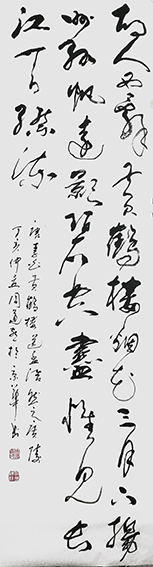 故人西辭黃鶴樓烟花三月下揚
州孤帆遠影碧空盡惟見長
江天際流
唐李白黃鶴樓送孟浩然之廣陵
丁亥仲夏周於京華